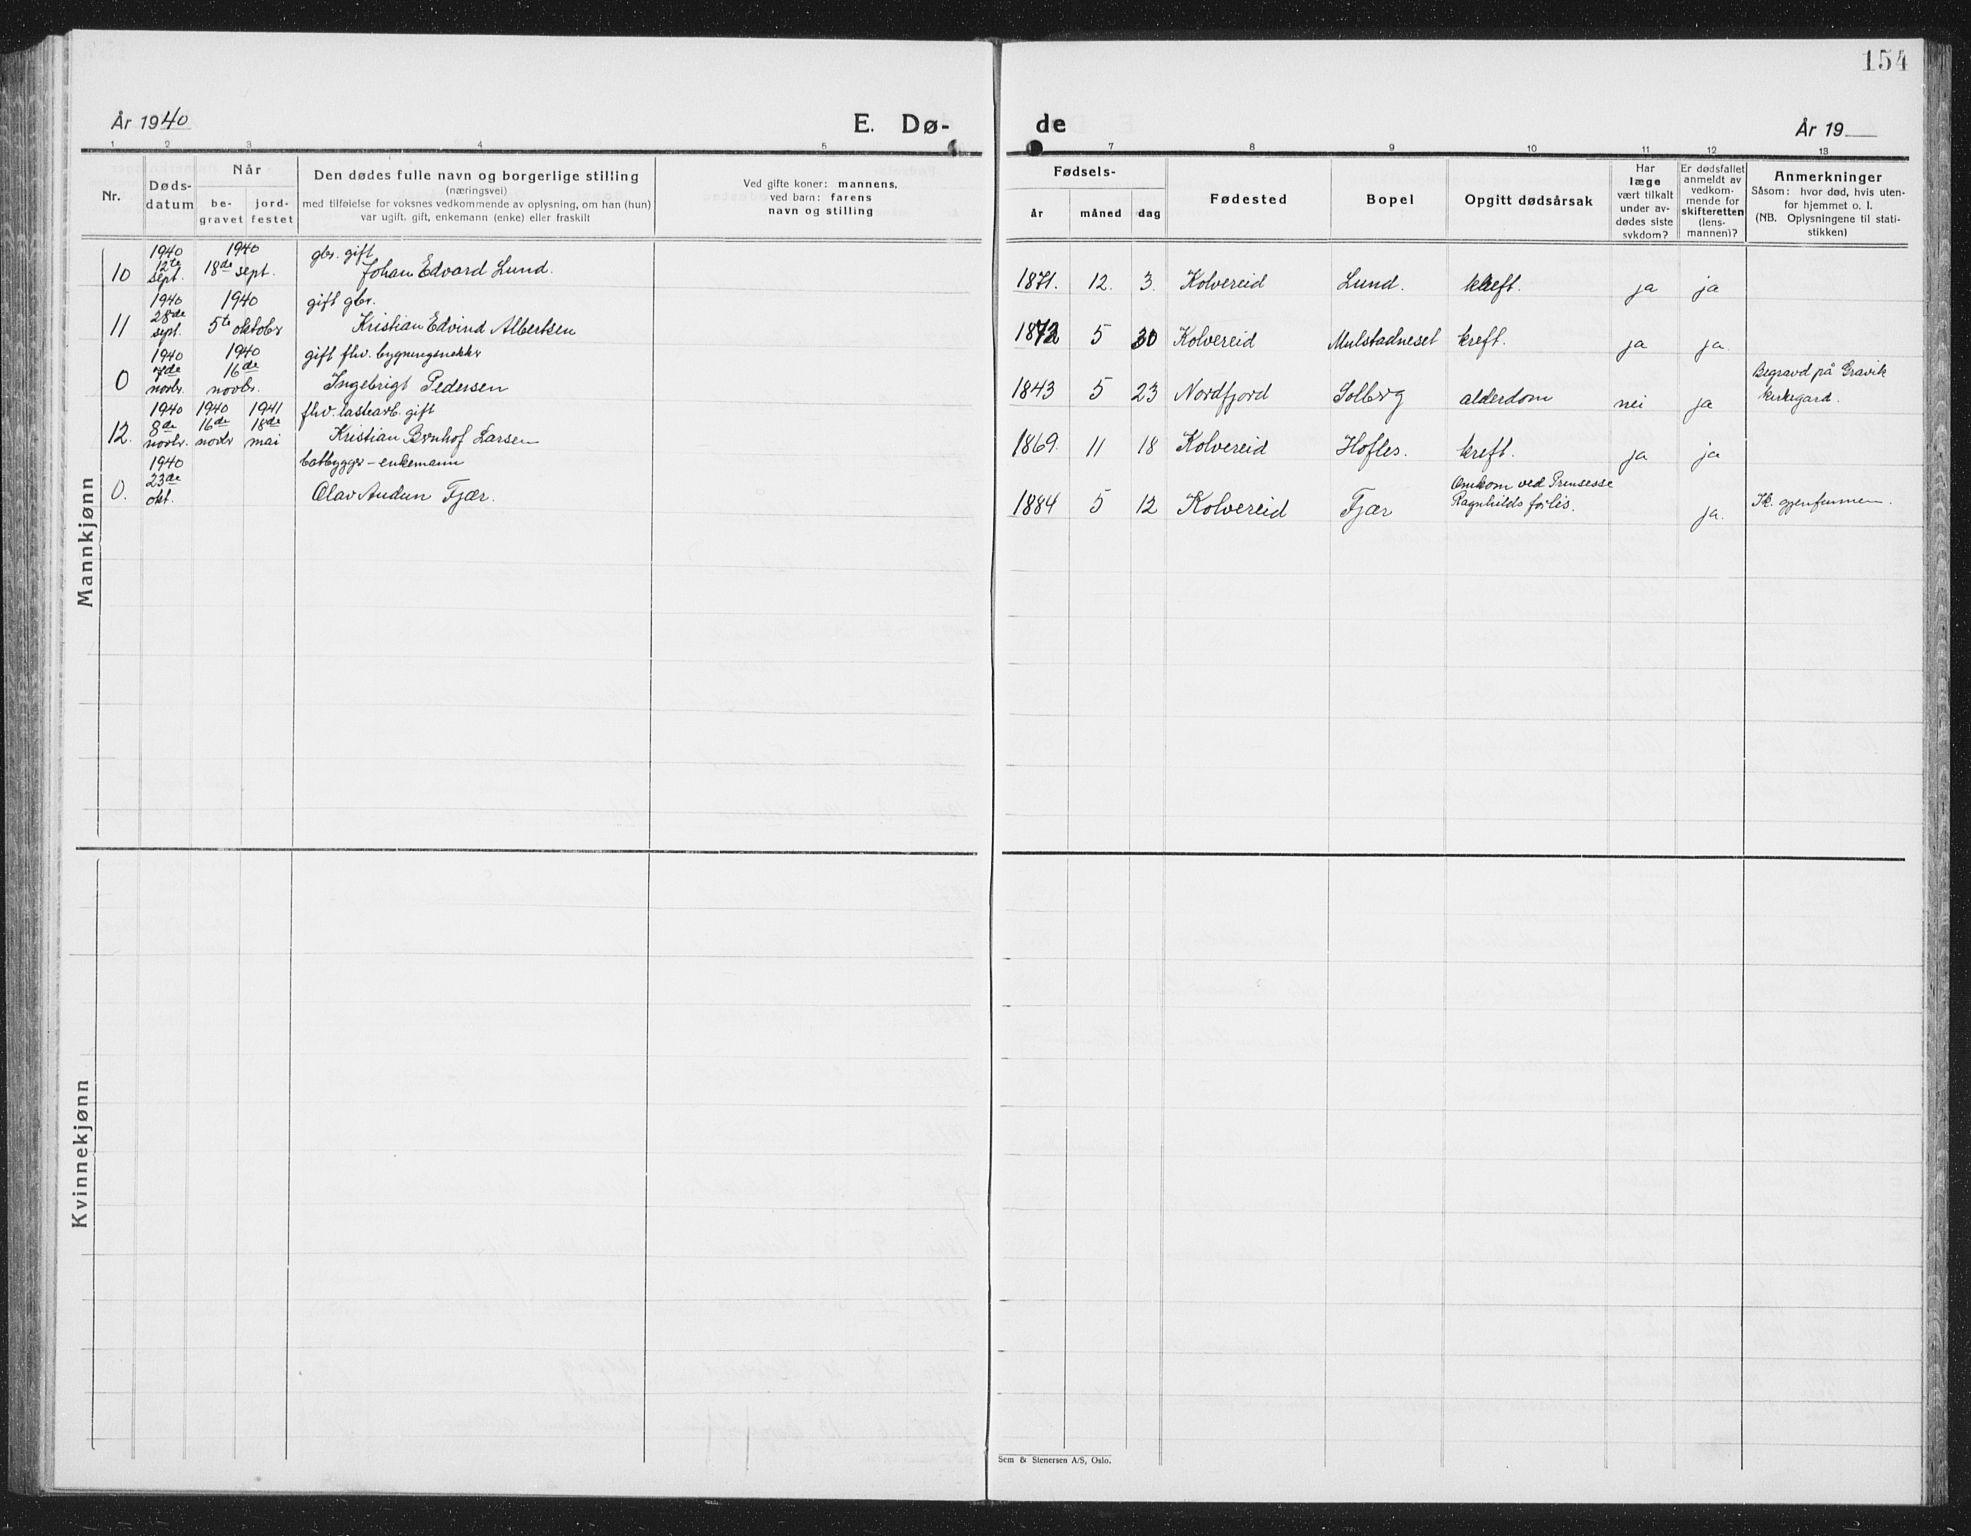 154
År 1940
E. Dø-
de
År 19
1 2 3 4 5
7 8 9 10 11 12 13
Nr.
Døds-
datum
Når
be-
gravet
jord-
festet
Den dødes fulle navn og borgerlige stilling
(næringsvei)
med tilføielse for voksnes vedkommende av oplysning, om han (hun)
var ugift, gift, enkemann (enke) eller fraskilt
Ved gifte koner: mannens,
ved barn: farens
navn og stilling
Fødsels-
år
måned
dag
Fødested
Bopel
Opgitt dødsårsak
Har
læge
vært tilkalt
under av-
dødes siste
sykdom?
Er dødsfallet
anmeldt av
vedkom-
mende for
skifteretten
(lens-
mannen)?
Anmerkninger
Såsom: hvor død, hvis uten-
for hjemmet o. l.
(NB. Oplysningene til stati-
stikken)
Mannkjønn
1940 1940 gbr. gift
10 12te sept. 18de sept. Johan Edvard Lund. 1871. 12. 3. Kolvereid Lund. kreft. ja ja
1940 1940 gift gbr.
11 28de sept. 5te oktober Kristian Edvind Albertsen 1872 5 30 Kolvereid Mulstadneset kreft. ja ja.
1940 1940 gift fhv. bygningssnekker
0 7de novbr. 16de novbr. Ingebrigt Pedersen 1843 5 23 Nordfjord Solberg alderdom nei ja Begravd på Gravik
kirkegard.
1940 1940 1941 fhv. lastearb. gift
12. 8de novbr. 16de novbr 18de mai Kristian Bernhof Larsen 1869. 11 18 Kolvereid Hofles. kreft. ja ja
1940 båtbygger - enkemann
0. 23de okt. Olav Audun Fjær. 1884 5 12 Kolvereid Fjær Omkom ved Prinsesse
Ragnhilds forlis. ja. Ik. gjenfunnen.
Kvinnekjønn
Sem & Stenersen A/S, Oslo.